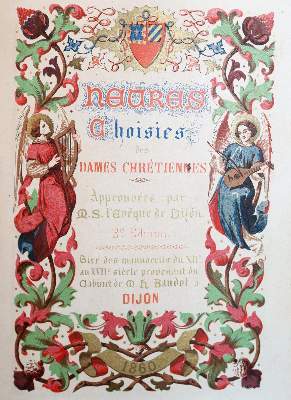 HEURES
Choisies
des
DAMES CHRÉTIENNES
Approuvées par
M.S. l'Evêque de Dijon.
2e Edition
Tiré des manuscrits du XIIe
au XVIIe siècle provenant du
Cabinet de M. H. Baudot
à
DIJON
1860